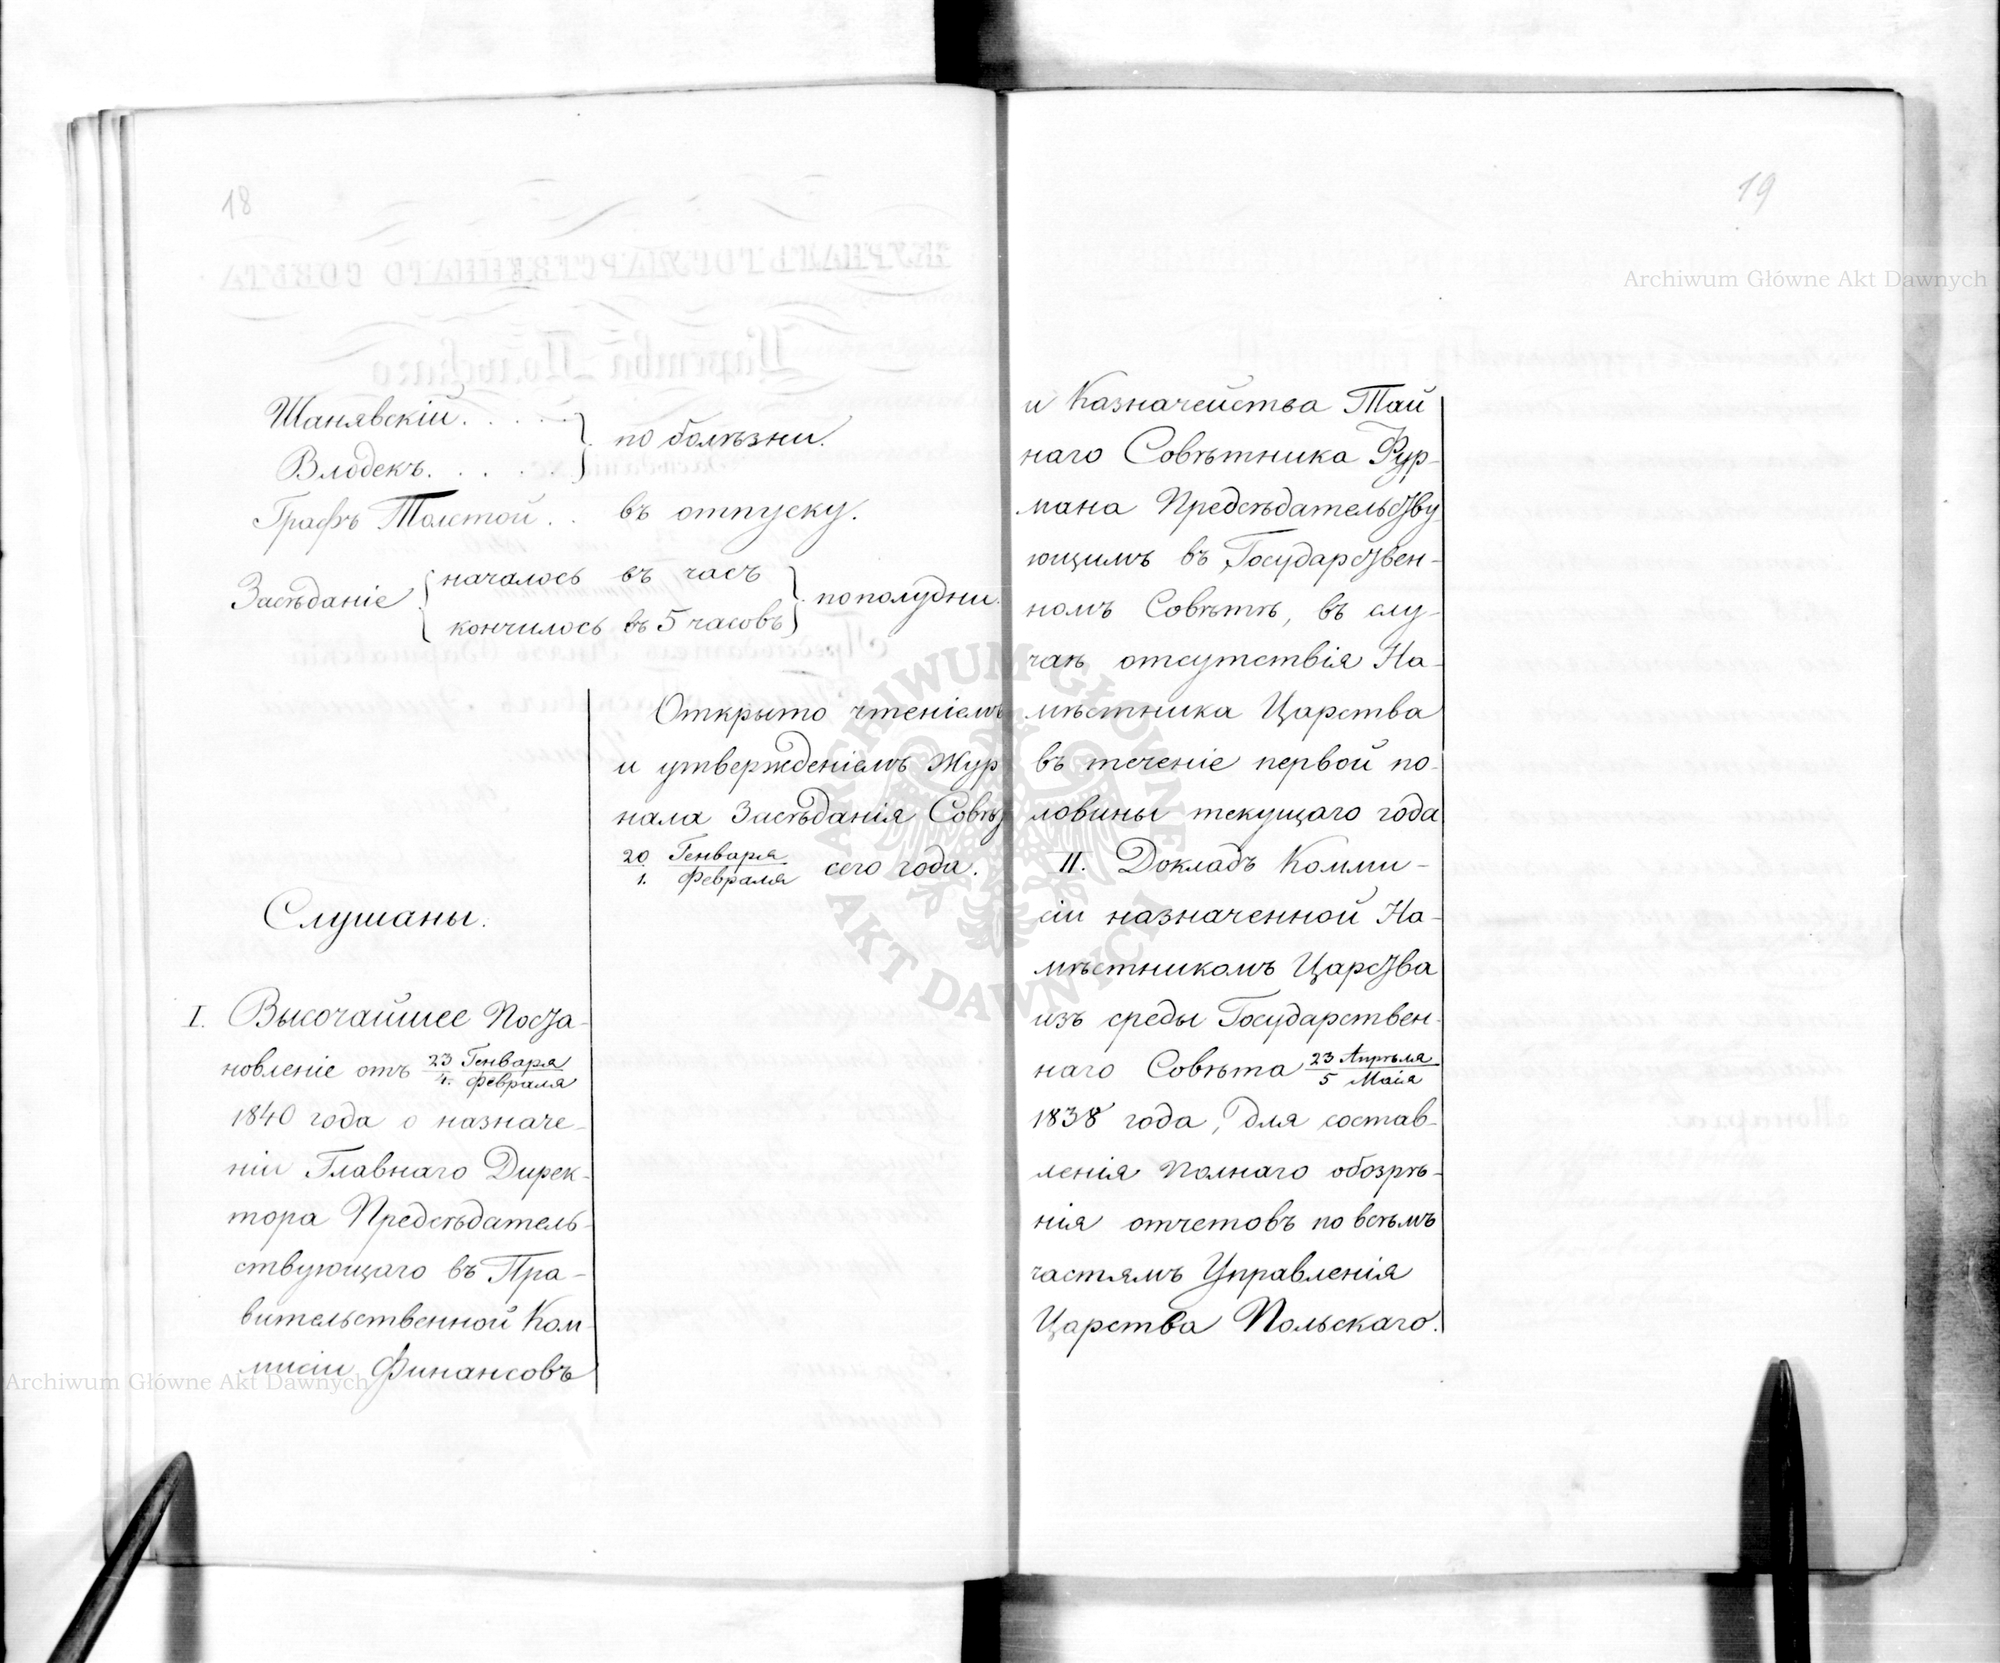 18
Шанявскій. . . . . } по болѣзни.
Влодекъ. . . . . }
Графъ Толстой . . въ отпуску.
Засѣданіе { началось въ часъ } пополудни.
{ кончилось въ 5 часовъ }
Открыто чтеніемъ
и утвержденіемъ Жур
нала Засѣданія Совѣт
20/1. Генваря/Февраля сего года.
Слушаны.
I. Высочайшее Поста-
новленіе отъ 23/4. Генваря/Февраля
1840 года о назначе-
ніи Главнаго Дирек-
тора Предсѣдатель-
ствующаго въ Пра-
вительственной Ком-
мисіи Финансовъ
19
и Казначейства Тай
наго Совѣтника Фур-
мана Предсѣдательству
ющимъ въ Государствен-
номъ Совѣтѣ, въ слу-
чаѣ отсутствія На-
мѣстника Царства
въ теченіе первой по-
ловины текущаго года
II. Докладъ Комми-
сіи назначенной На-
мѣстникомъ Царства
изъ среды Государствен-
наго Совѣта 23 Апрѣля/5 Маія
1838 года, для состав-
ленія полнаго обозрѣ-
нія отчетовъ по всѣмъ
частямъ Управленія
Царства Польскаго.
Archiwum Główne Akt Dawnych
Archiwum Główne Akt Dawnych
ARCHIWUM GŁÓWNE AKT DAWNYCH